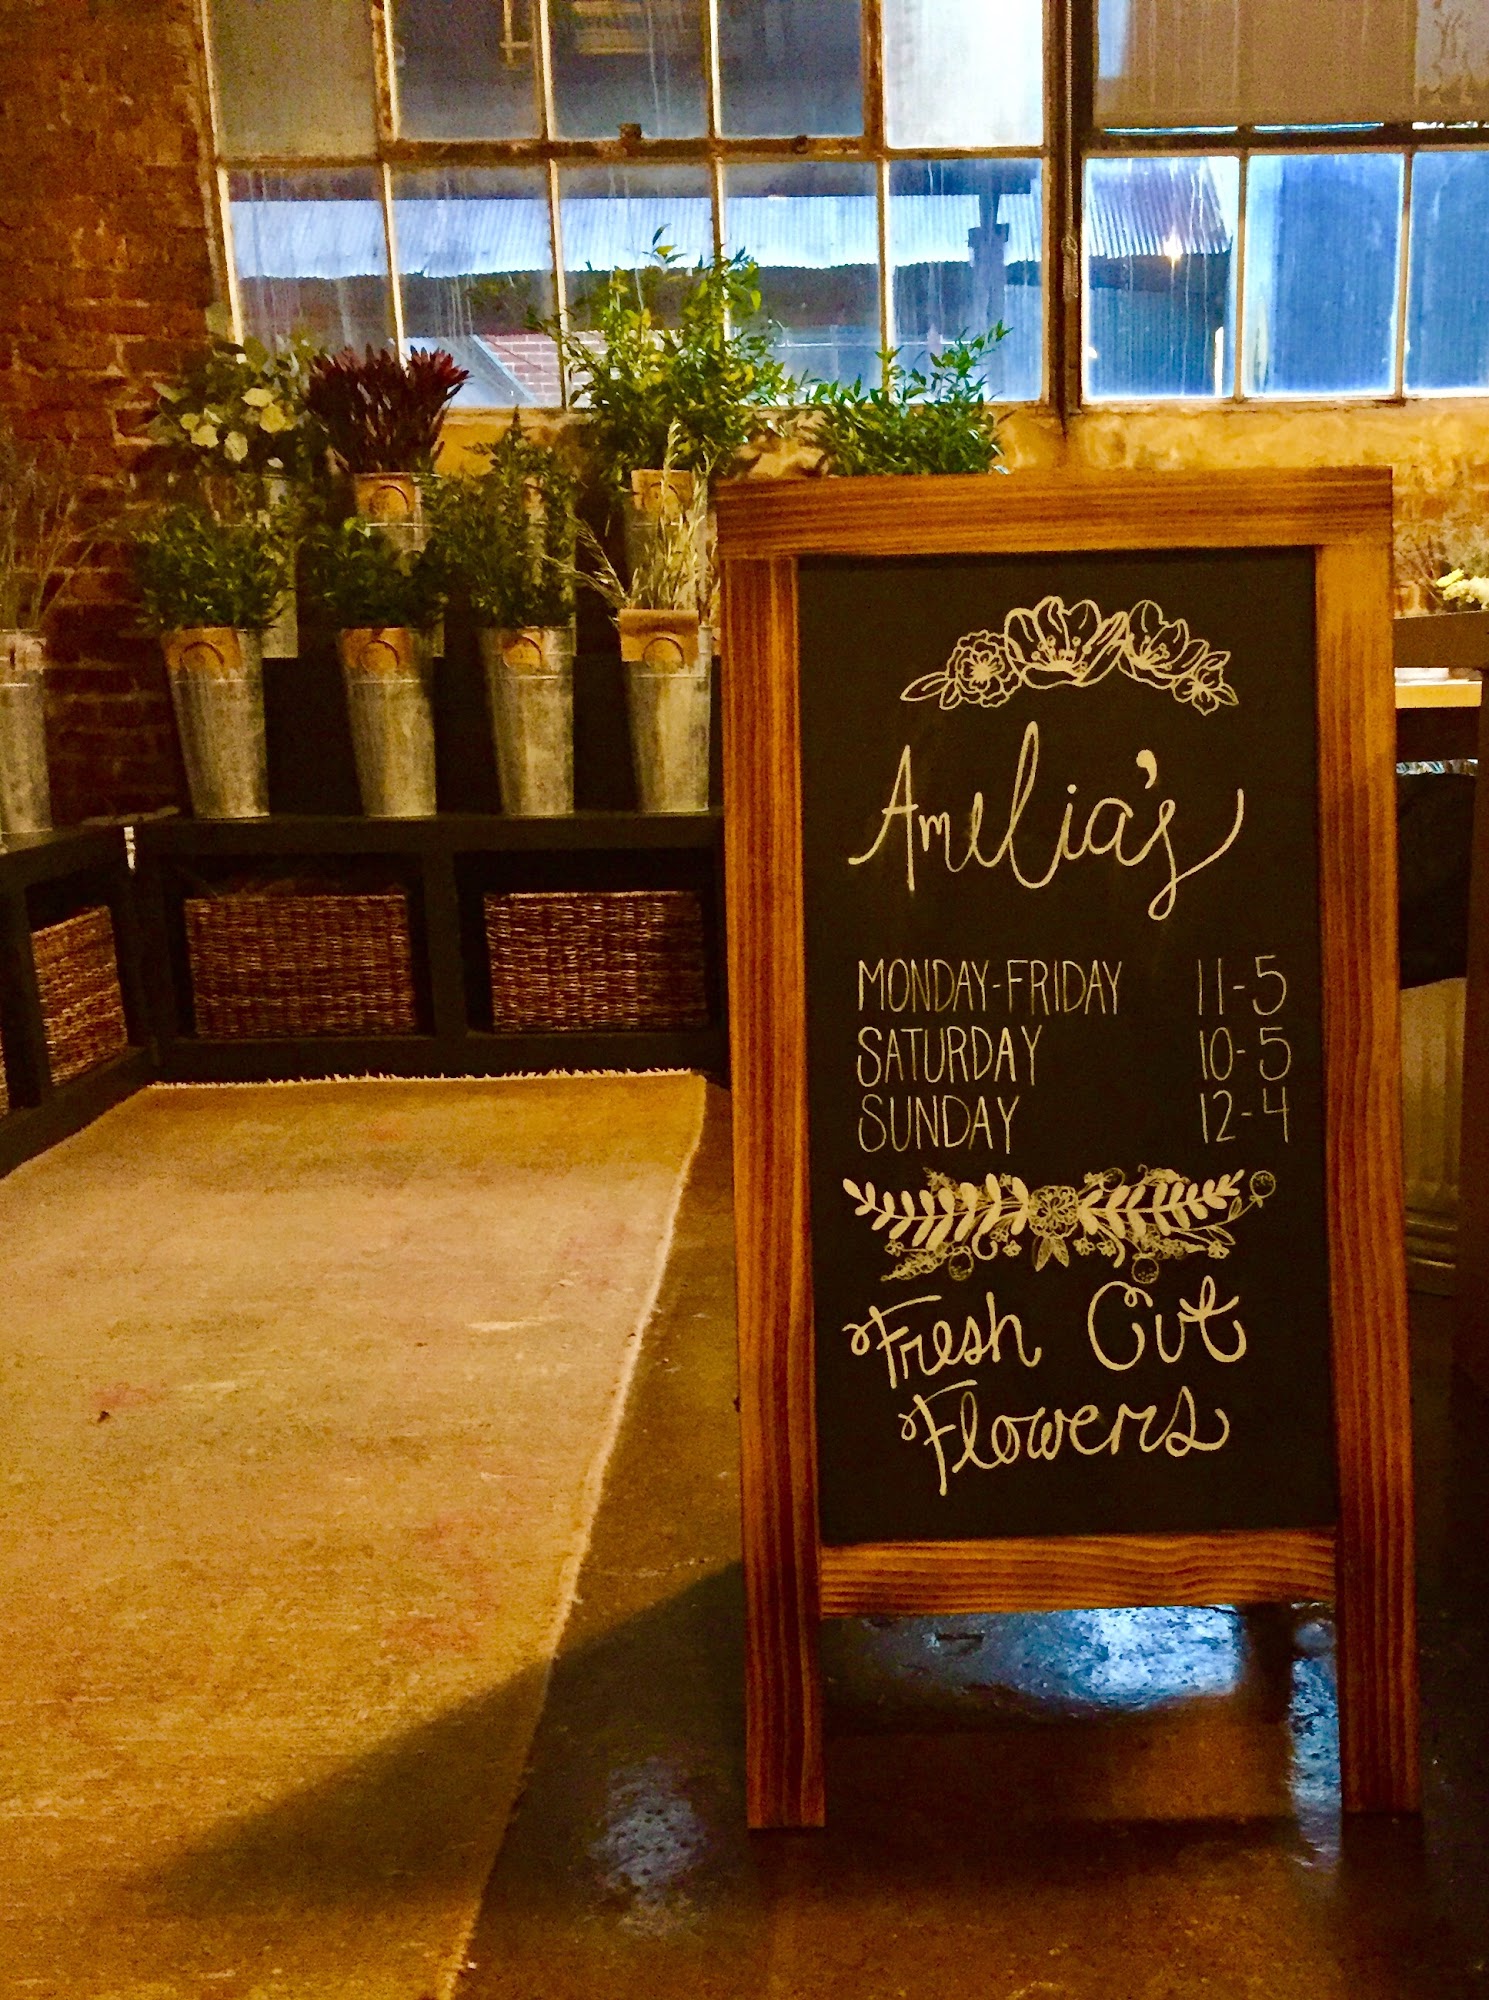 Amelia's
MONDAY-FRIDAY 11-5
SATURDAY 10-5
SUNDAY 12-4
Fresh Cut
Flowers